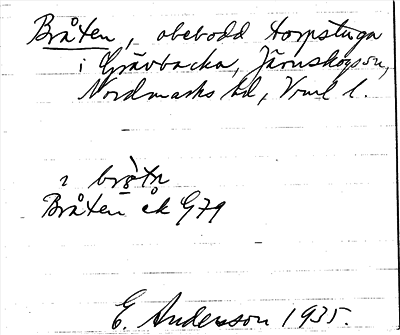 Bråten, obebodd torpstuga
i Grävbacka, Järnskogs sn,
Nordmarks hd, Vrml l.
i brǻ̀tn
Bråten ek G79
E. Andersson 1935.